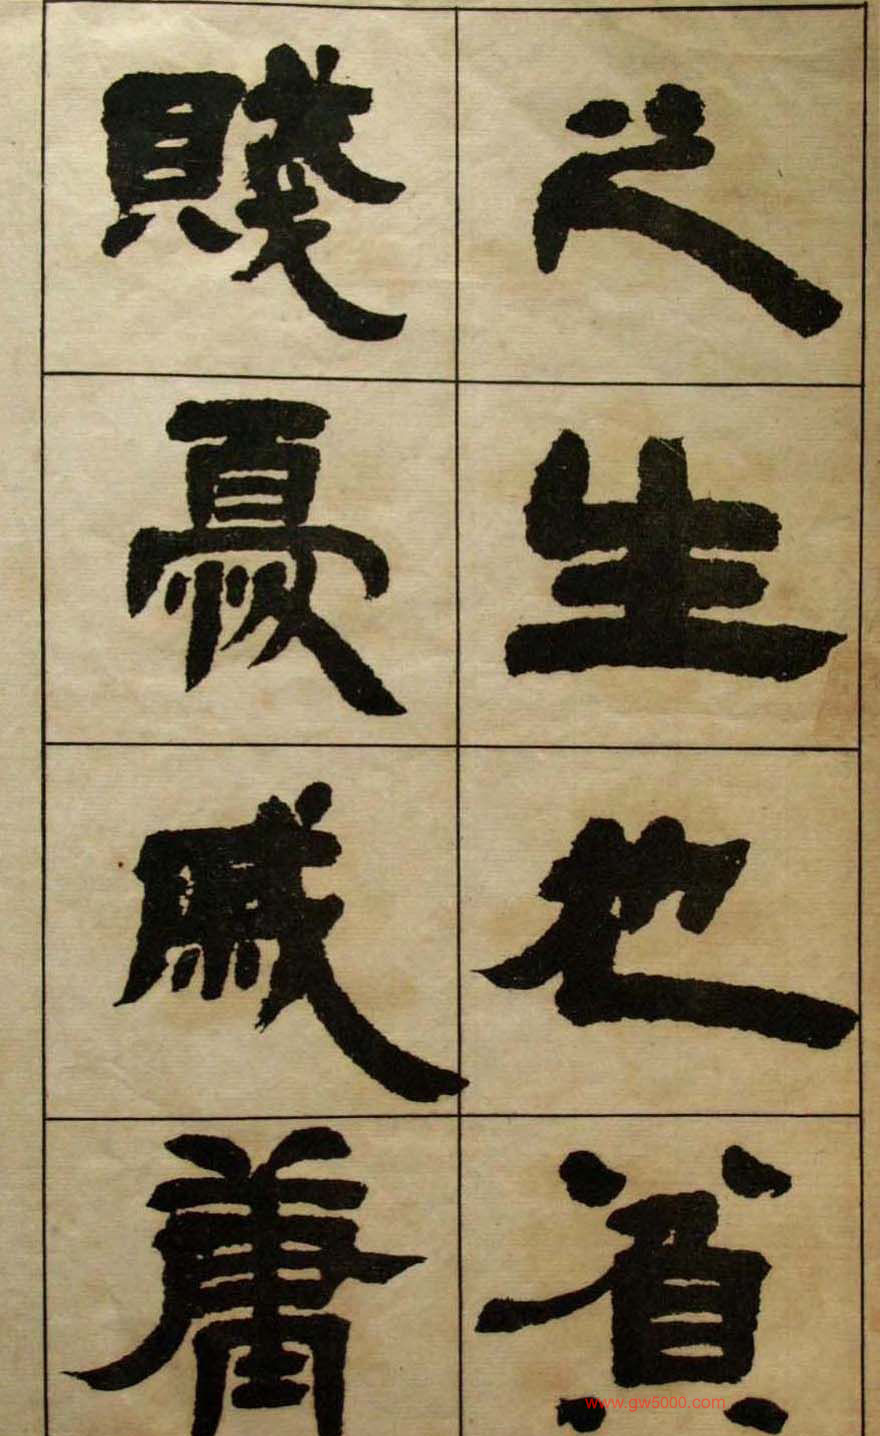 之生也貧
賤憂戚庸
www.gw5000.com